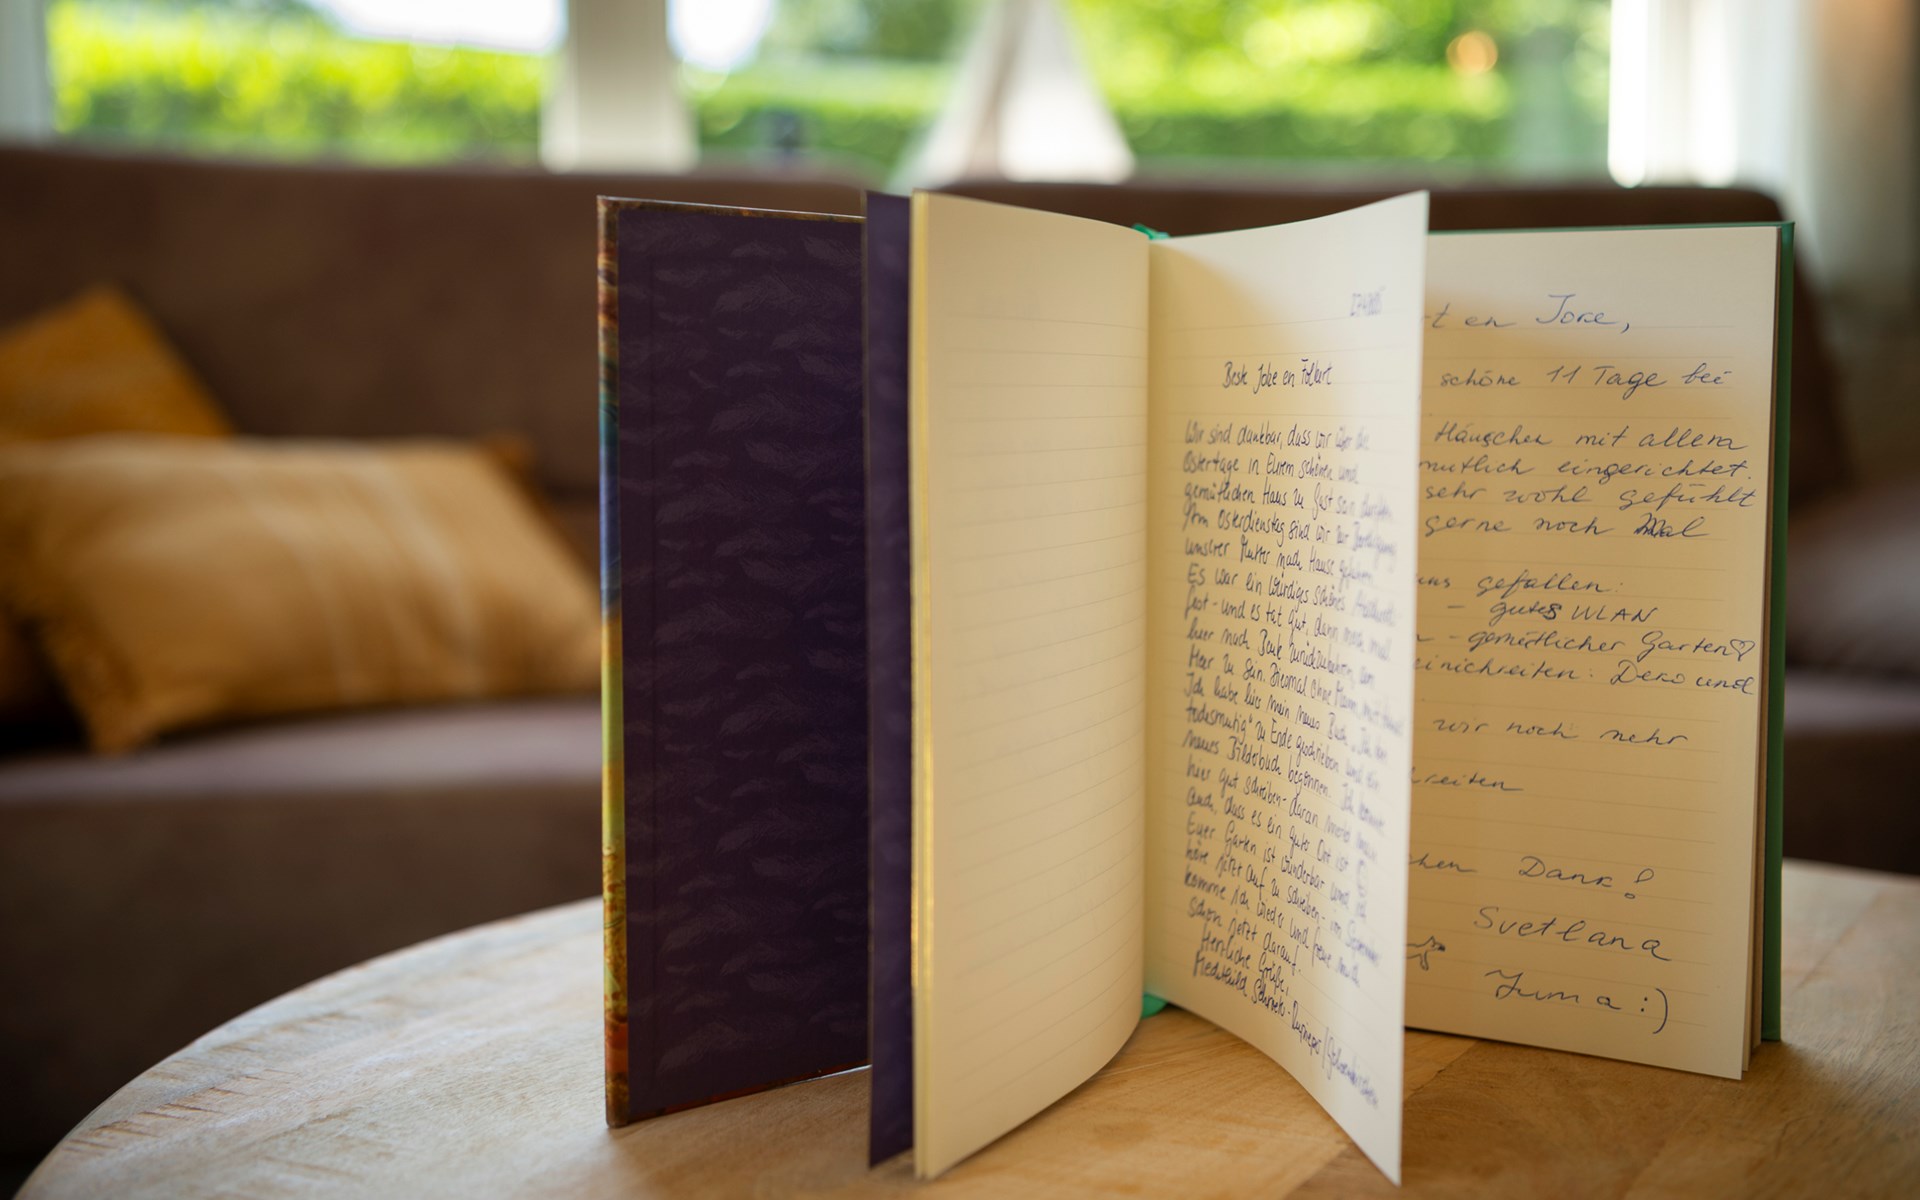 Beste Joke en Folkert
Wir sind dankbar, dass wir über die
Ostertage in Eurem schönen und
gemütlichen Haus zu Gast sein durften.
Am Osterdienstag sind wir zur Beerdigung
unserer Mutter nach Hause gefahren.
Es war ein würdiges schönes
fest - und es tat gut, dann noch mal
hier nach zurückzukehren, am
Meer zu sein. Diesmal ohne Mann, mit
Ich habe hier mein neues Buch
todesmutig" zu Ende geschrieben und ein
neues Bilderbuch begonnen. Ich konnte
hier gut schreiben - daran merkt man
auch, dass es ein guter Ort ist
Euer Garten ist wunderbar und ich
höre jetzt auf zu schreiben - im Sommer
komme ich wieder und freue mich
schon jetzt darauf.
Herzliche Grüße,
Mechthild
t en Joke,
schöne 11 Tage bei
Häuschen mit allem
mütlich eingerichtet.
sehr wohl gefühlt
gerne noch Mal
uns gefallen:
- gutes WLAN
- gemütlicher Garten♡
einichreiten: Deko und
wir noch mehr
reiten
chen Dank!
Svetlana
Juma :)